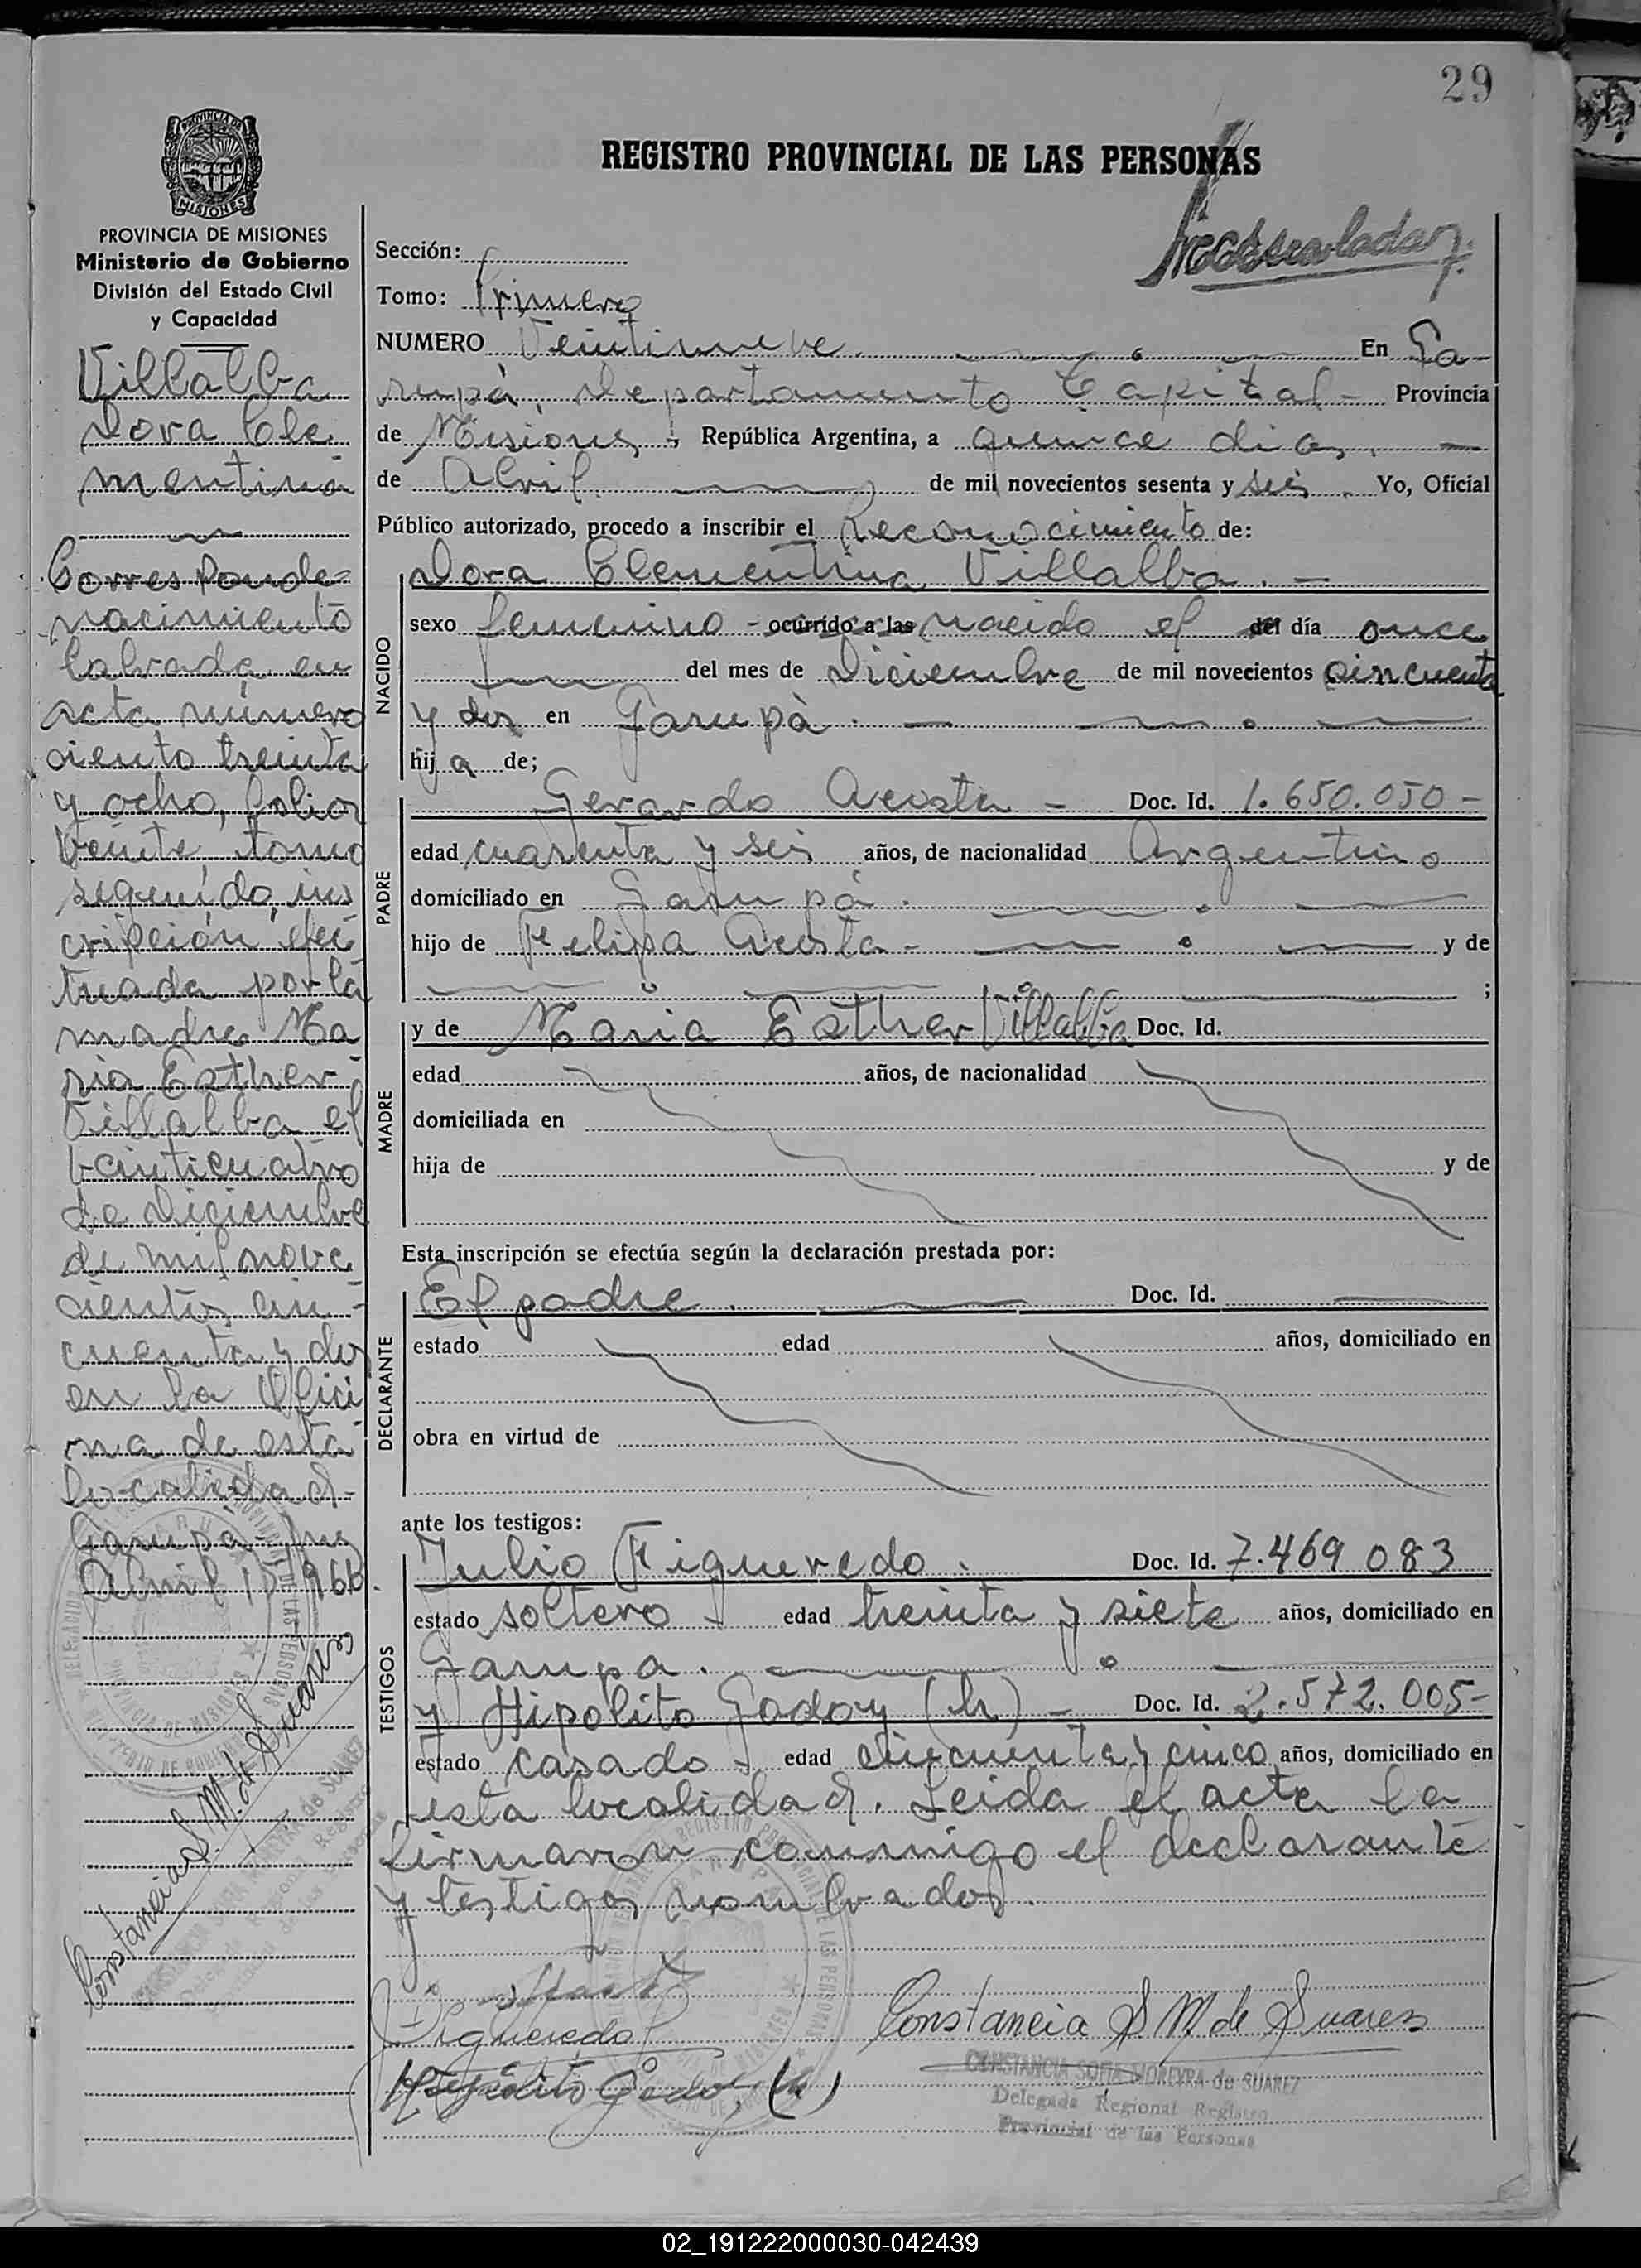 29
REGISTRO PROVINCIAL DE LAS PERSONAS
PROVINCIA DE MISIONES
Ministerio de Gobierno
División del Estado Civil
y Capacidad
Villalba
Dora Cle
mentina
Corresponde
nacimiento
labrada en
acta número
ciento treinta
y ocho, folios
veinte, tomo
segundo, ins
cripción efec
tuada por la
madre Ma
ria Esther
Villalba el
veinticuatro
de Diciembre
de mil nove
cientos cin-
cuenta y dos
en la Ofici
na de esta
localidad-
Garupá-
Abril 15 966.
Constancia S. M. de Suarez
Sección:
Tomo: Primero
NUMERO Veintinueve. En Ga-
rupá, departamento Capital- Provincia
de Misiones; República Argentina, a quince dias,
de Abril de mil novecientos sesenta y seis. Yo, Oficial
Público autorizado, procedo a inscribir el Reconocimiento de:
Dora Clementina Villalba.-
NACIDO
sexo femenino - ocurrido a las nacido el del día once
del mes de Diciembre de mil novecientos cincuenta
y dos en Garupà.
hija de;
PADRE
Gerardo Acosta - Doc. Id. 1.650.050-
edad cuarenta y seis años, de nacionalidad Argentino
domiciliado en Garupá.
hijo de Felipa Acosta- y de
;
MADRE
y de Maria Esther Villalba Doc. Id.
edad años, de nacionalidad
domiciliada en
hija de y de
Esta inscripción se efectúa según la declaración prestada por:
DECLARANTE
El padre. Doc. Id.
estado edad años, domiciliado en
obra en virtud de
ante los testigos:
TESTIGOS
Julio Figueredo. Doc. Id. 7.469 083
estado soltero - edad treinta y siete años, domiciliado en
Garupa.
y Hipolito Godoy (h) - Doc. Id. 2.572.005-
estado casado - edad cincuenta y cinco años, domiciliado en
esta localidad. Leida el acta la
firmaron conmigo el declarante
y testigos nombrados.
Figueredo
Hipólito Godoy (h)
Constancia S M de Suarez
CONSTANCIA SOFIA MOREYRA de SUAREZ
Delegada Regional Registro
Provincial de las Personas
02_191222000030-042439